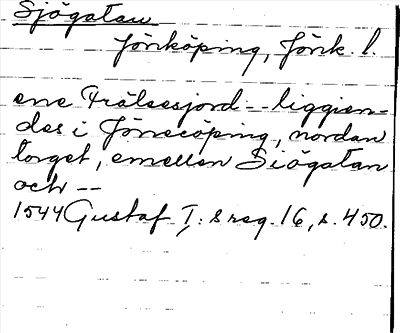 Sjögatan
Jönköping, Jönk. l.
ene Frälsesjord -- liggien-
des i Jönecöping, nordan
torget, emellen Siögatan
och --
1544 Gustaf I:s reg. 16, s. 450.